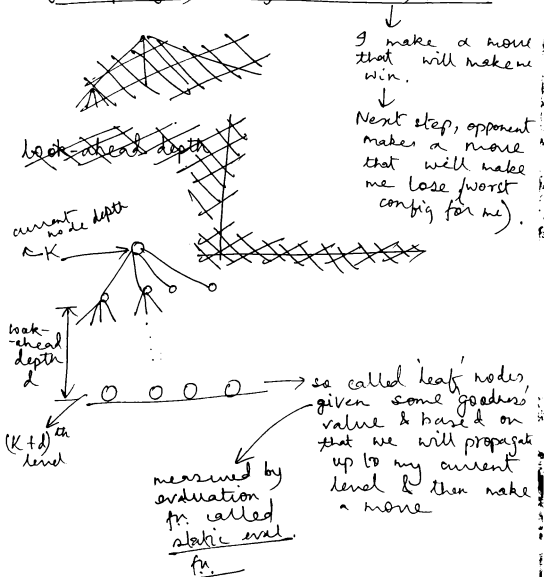 I make a move
that will make me
win.
Next step, opponent
makes a move
that will make
me lose (worst
config for me).
look-ahead depth
current
node depth
K
look-
-ahead
depth
d
(K+d)th
level
so called 'leaf' nodes,
given some 'goodness'
value & based on
that we will propagate
up to my current
level & then make
a move
measured by
evaluation
fn. called
static eval.
fn.